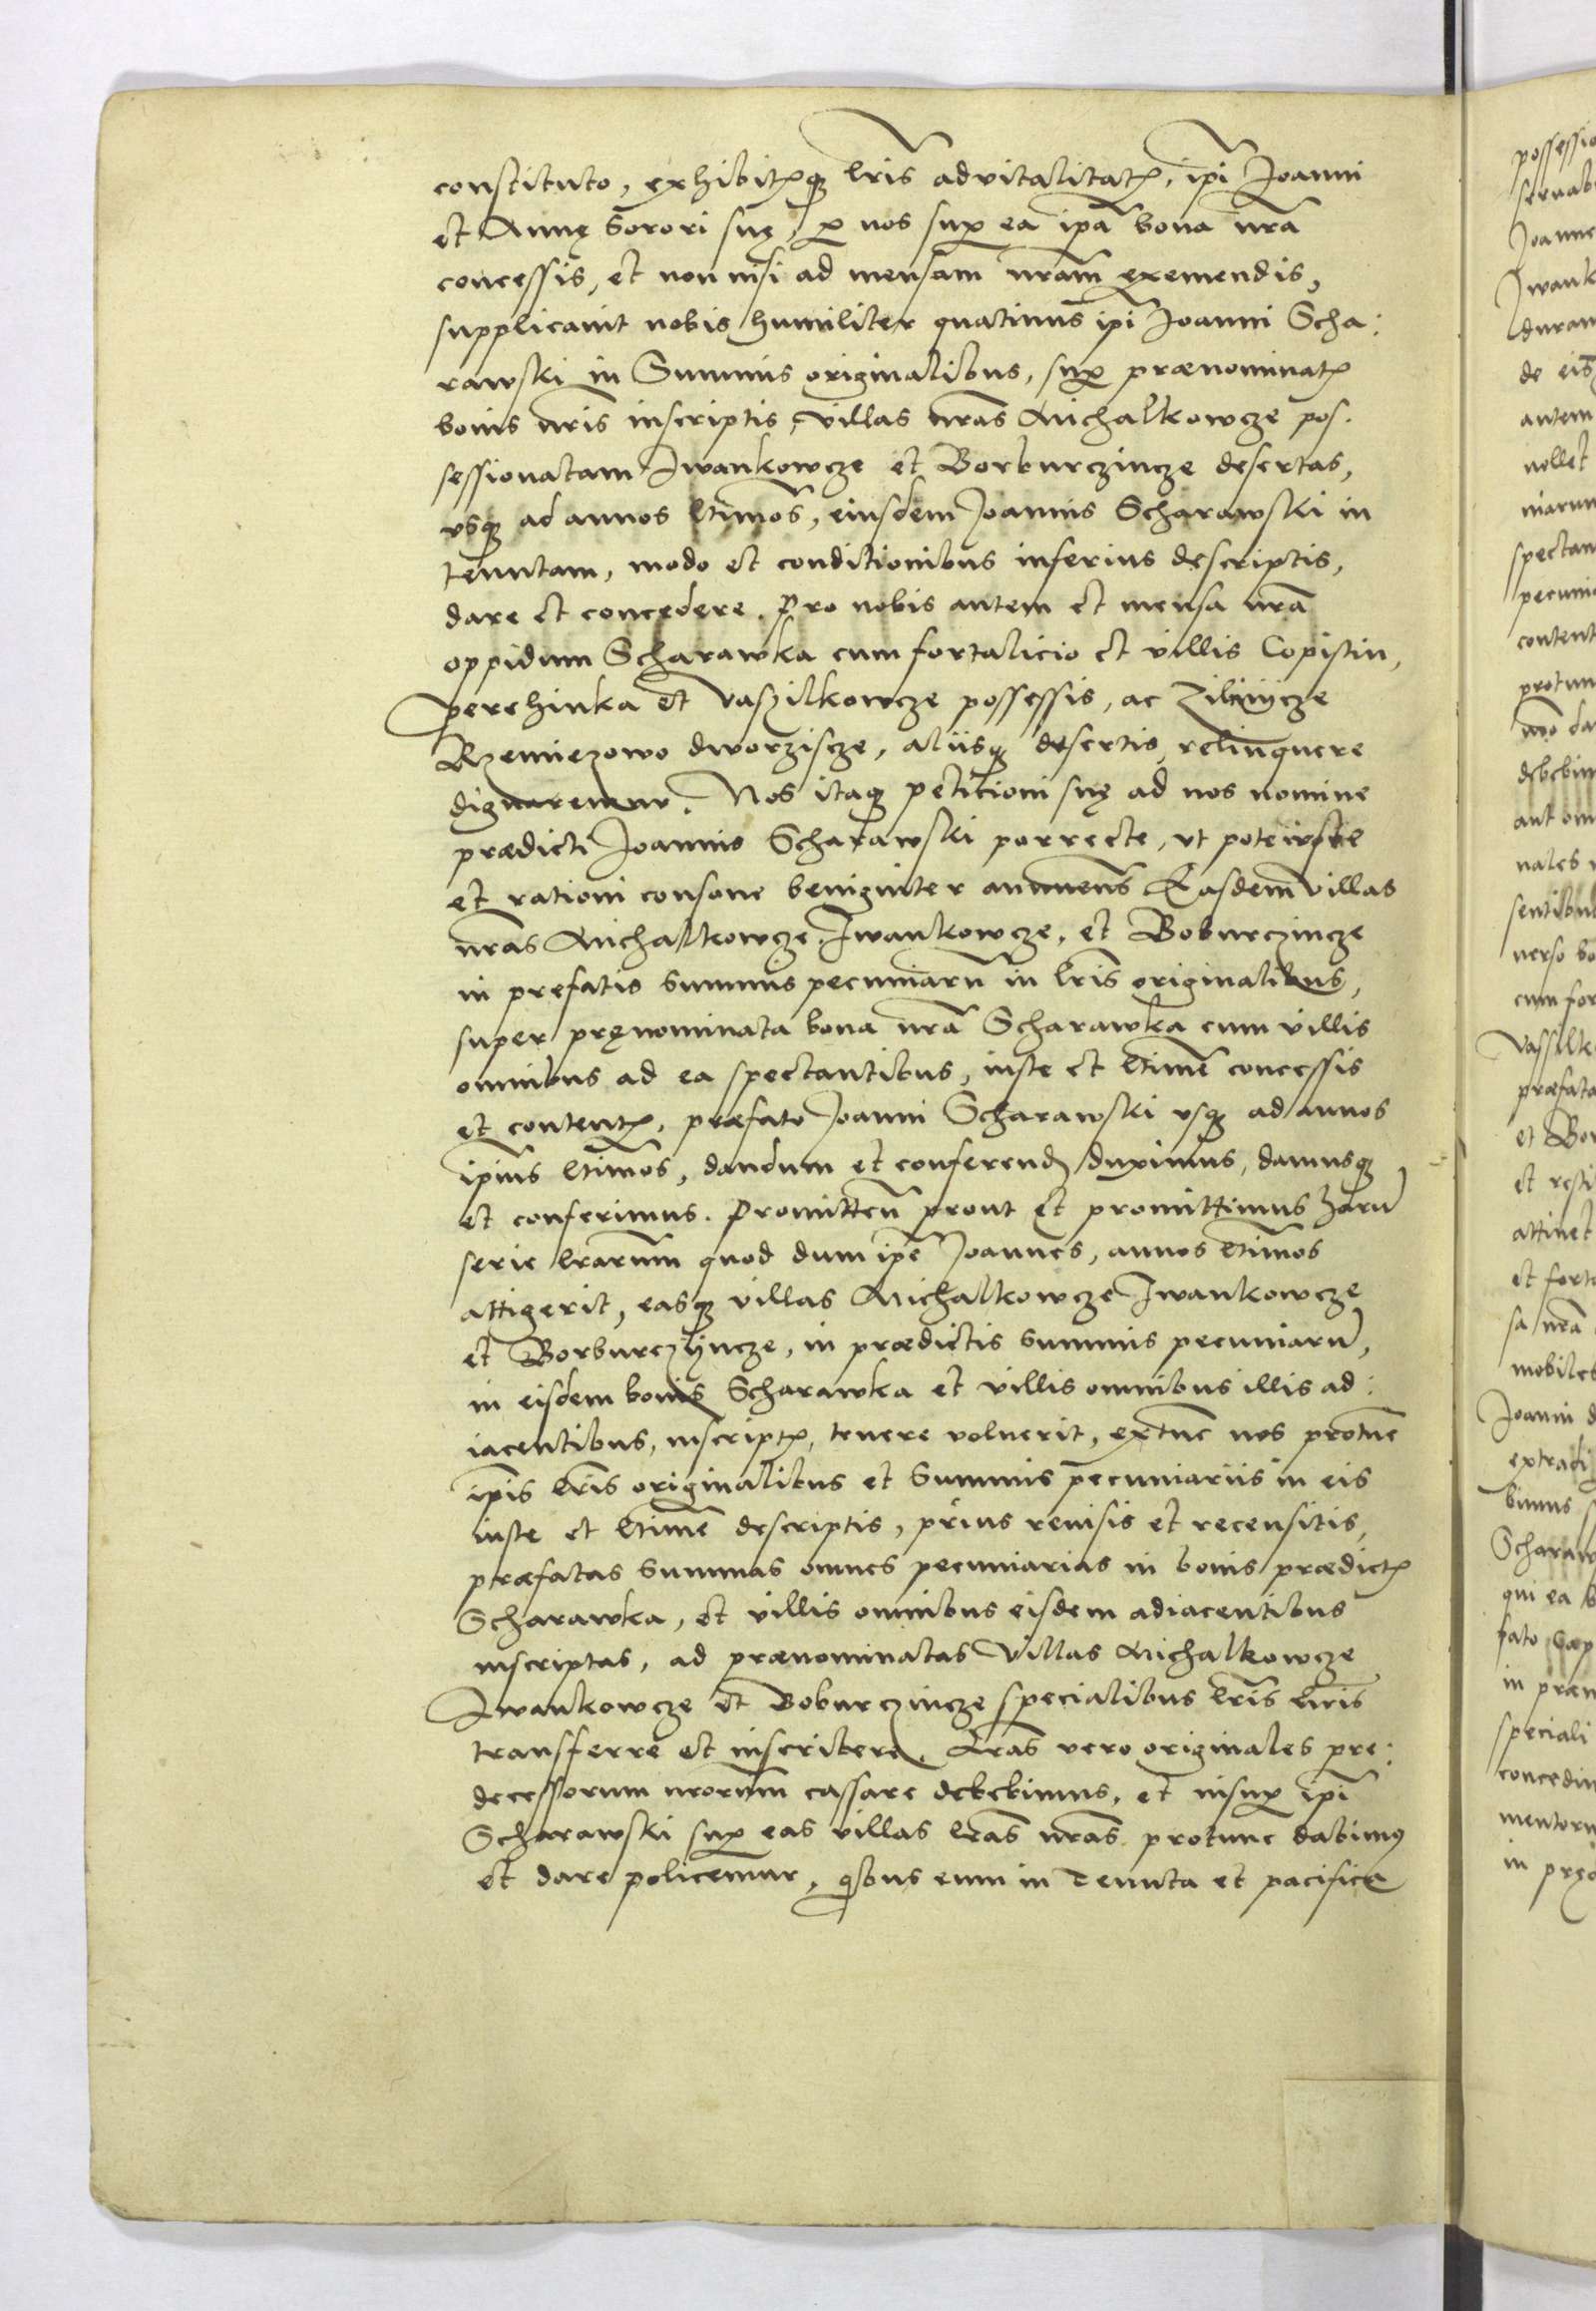 constituto, exhibitisq; lris̄ advitalitatis, ipī Joanni
et Annę Sorori suę, p nos sup ea ipā bona nrā
concessis, et non nisi ad mensam nrām exemendis,
supplicavit nobis humiliter quatinus ipī Joanni Scha:
rawski in Summis originalibus, sup prænominatis
bonis nrīs inscriptis, villas nrās Michalkowcze pos.
sessionatam Iwankowcze et Borburczincze desertas,
vsq; ad annos ltīmos, eiusdem Joannis Scharawski in
tenutam, modo et conditionibus inferius descriptis,
dare et concedere. Pro nobis autem et mensa nrā
oppidum Scharawka cum fortalicio et villis Copistin,
perehinka et Vaszilkowcze possessis, ac
Rzemiezowo dworziscze, aliisq; desertis, relinquere
dignaremur. Nos itaq; petitioni suę ad nos nomine
prædicti Joannis Scharawski porrecte, vt pote iuste
et rationi consone benigniter annuen̄s Easdem villas
nrās Michalkowcze, Iwankowcze, et Boburczincze
in prefatis summis pecuniarū in lrīs originalibus,
super pręnominata bona nrā Scharawka cum villis
omnibus ad ea spectantibus, iuste et ltīme concessis
et contentis, præfato Joanni Scharawski vsq; ad annos
ipīus ltīmos, dandum et conferend duximus, damusq;
et conferimus. Promitten̄ prout et promittimus harū
serie lrārum quod dum ipē Joannes, annos ltīmos
attigerit, easq; villas Michalkowcze Iwankowcze
et Borburczyncze, in prædictis summis pecuniarū,
in eisdem bonis Scharawka et villis omnibus illis ad:
iacentibus, inscriptis, tenere voluerit, extunc nos protunc
ipīs lrīs originalibus et Summis pecuniariis in eis
iuste et ltīme descriptis, prius revisis et recensitis,
præfatas summas omnes pecuniarias in bonis prædictis
Scharawka, et villis omnibus eisdem adiacentibus
inscriptas, ad prænominatas villas Michalkowcze
Iwankowcze et Boburczincze specialibus lrīs nrīs
transferre et inscribere. Lrās vero originales pre:
decessorum nrorum cassare debebimus, et insup ipī
Scharawski sup eas villas lrās nrās protunc dabimus
et dare policemur, qibus eum in Tenuta et pacifica